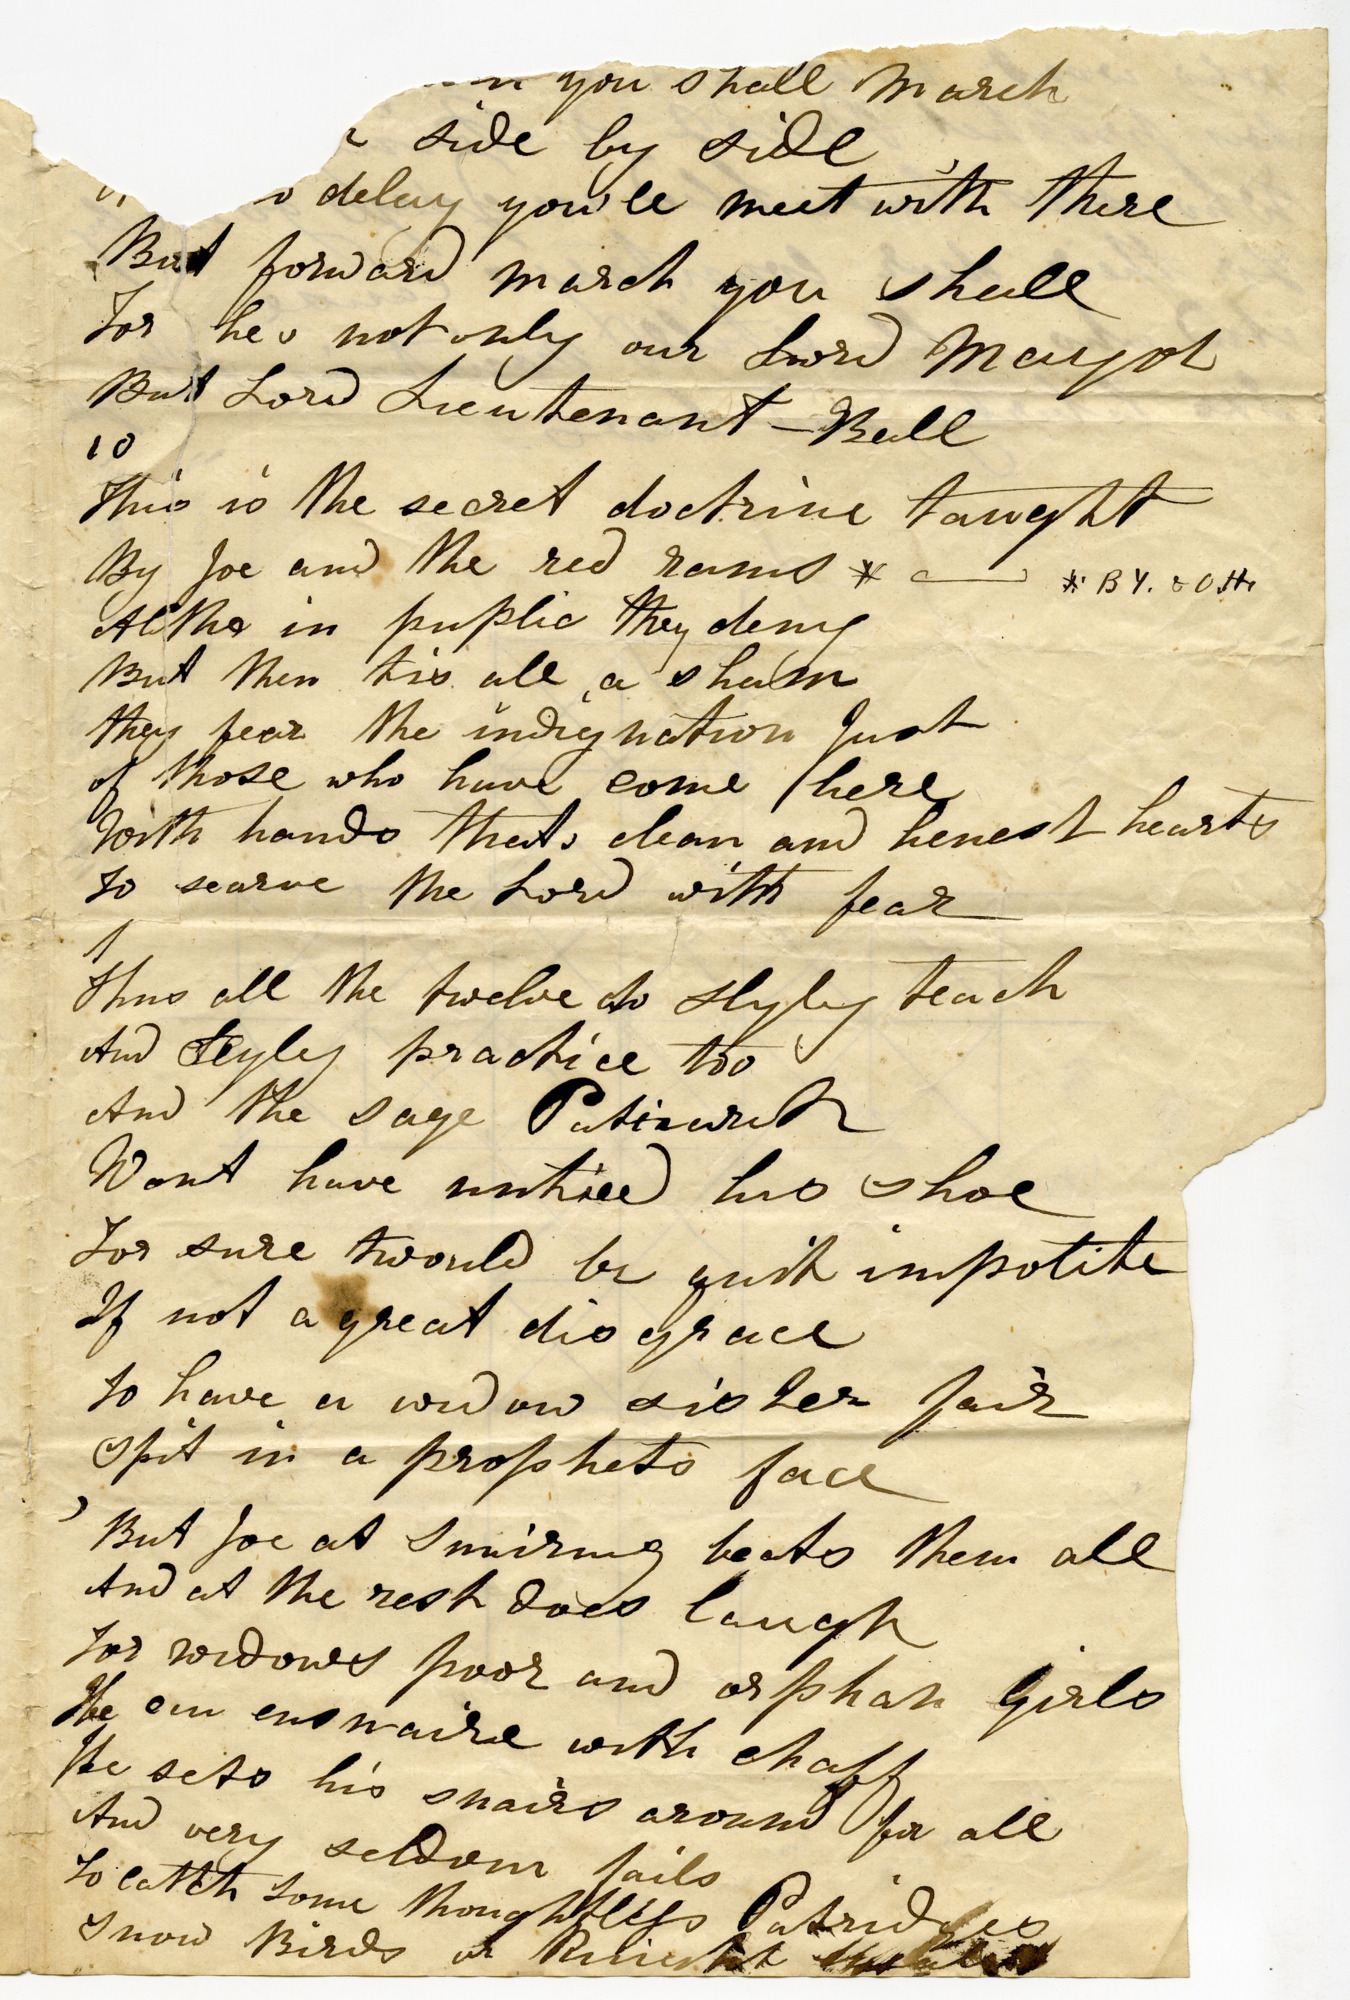 you shall march
side by side
delay you'le meet with there
But forward march you shall
For hes not only our Lord Mayor
But Lord Lieutenant - Ball
10
This is the secret doctrine taught
By Joe and the red rams * — * B Y. & O.H.
Altho in puplic they deny
But then tis all a sham
they fear the indignation Just
of those who have come here
With hands thats clean and honest hearts
to searve the Lord with fear
1
Thus all the twelve do slyly teach
And slyly practice too
And the sage Patiarch
Wont have untied his shoe
For sure twould be quit impolite
If not a great disgrace
to have a widow sister fair
Spit in a prophets face
But Joe at snairing beats them all
And at the rest does laugh
For widows poor and orphan Girls
He can ensnaire with chaff
He sets his snairs around for all
And very seldom fails
to catch some thoughtless Patridges
Snow Birds or